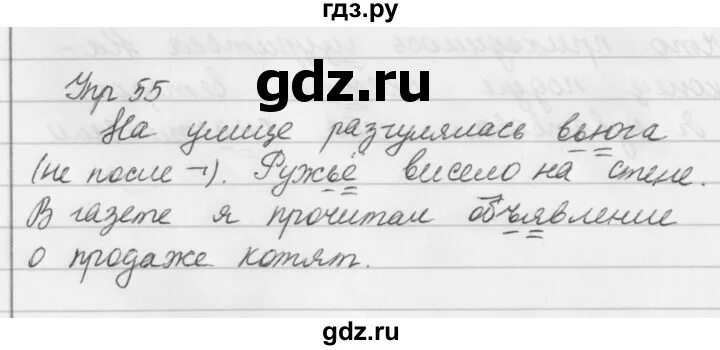 гдз.ру
gdz.ru
Упр 55
На улице разгулялась вьюга
(не после ¬). Ружьё висело на стене.
В газете я прочитал объявление
о продаже котят.
gdz.ru